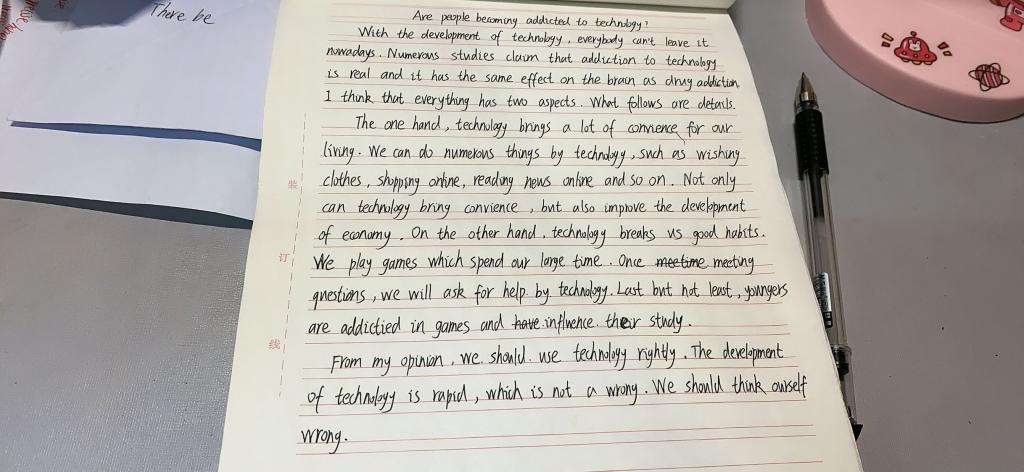 There be
Are people becoming addicted to technology?
With the development of technology, everybody can't leave it
nowadays. Numerous studies claim that addiction to technology
is real and it has the same effect on the brain as drug addiction.
I think that everything has two aspects. What follows are details.
The one hand, technology brings a lot of convience for our
living. We can do numerous things by technology, such as wishing
clothes, shopping online, reading news online and so on. Not only
can technology bring convience, but also improve the development
of economy. On the other hand, technology breaks us good habits.
We play games which spend our large time. Once meetime meeting
questions, we will ask for help by technology. Last but not least, youngers
are addictied in games and have influence their study.
From my opinion, we should use technology rightly. The development
of technology is rapid, which is not a wrong. We should think ourself
wrong.
装
订
线